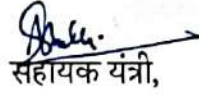 सहायक यंत्री,